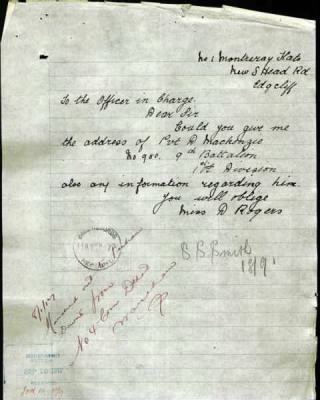 No 1 Montreray Flats
New S Head Rd
Edgcliff
To the Officer in Charge.
Dear Sir
Could you give me
the address of Pvt D Mackenzie
No 980. 9th Battalion
1st Division
also any information regarding him.
You will oblige
Miss D Rogers
S. B. Smith
from
No 4 Com